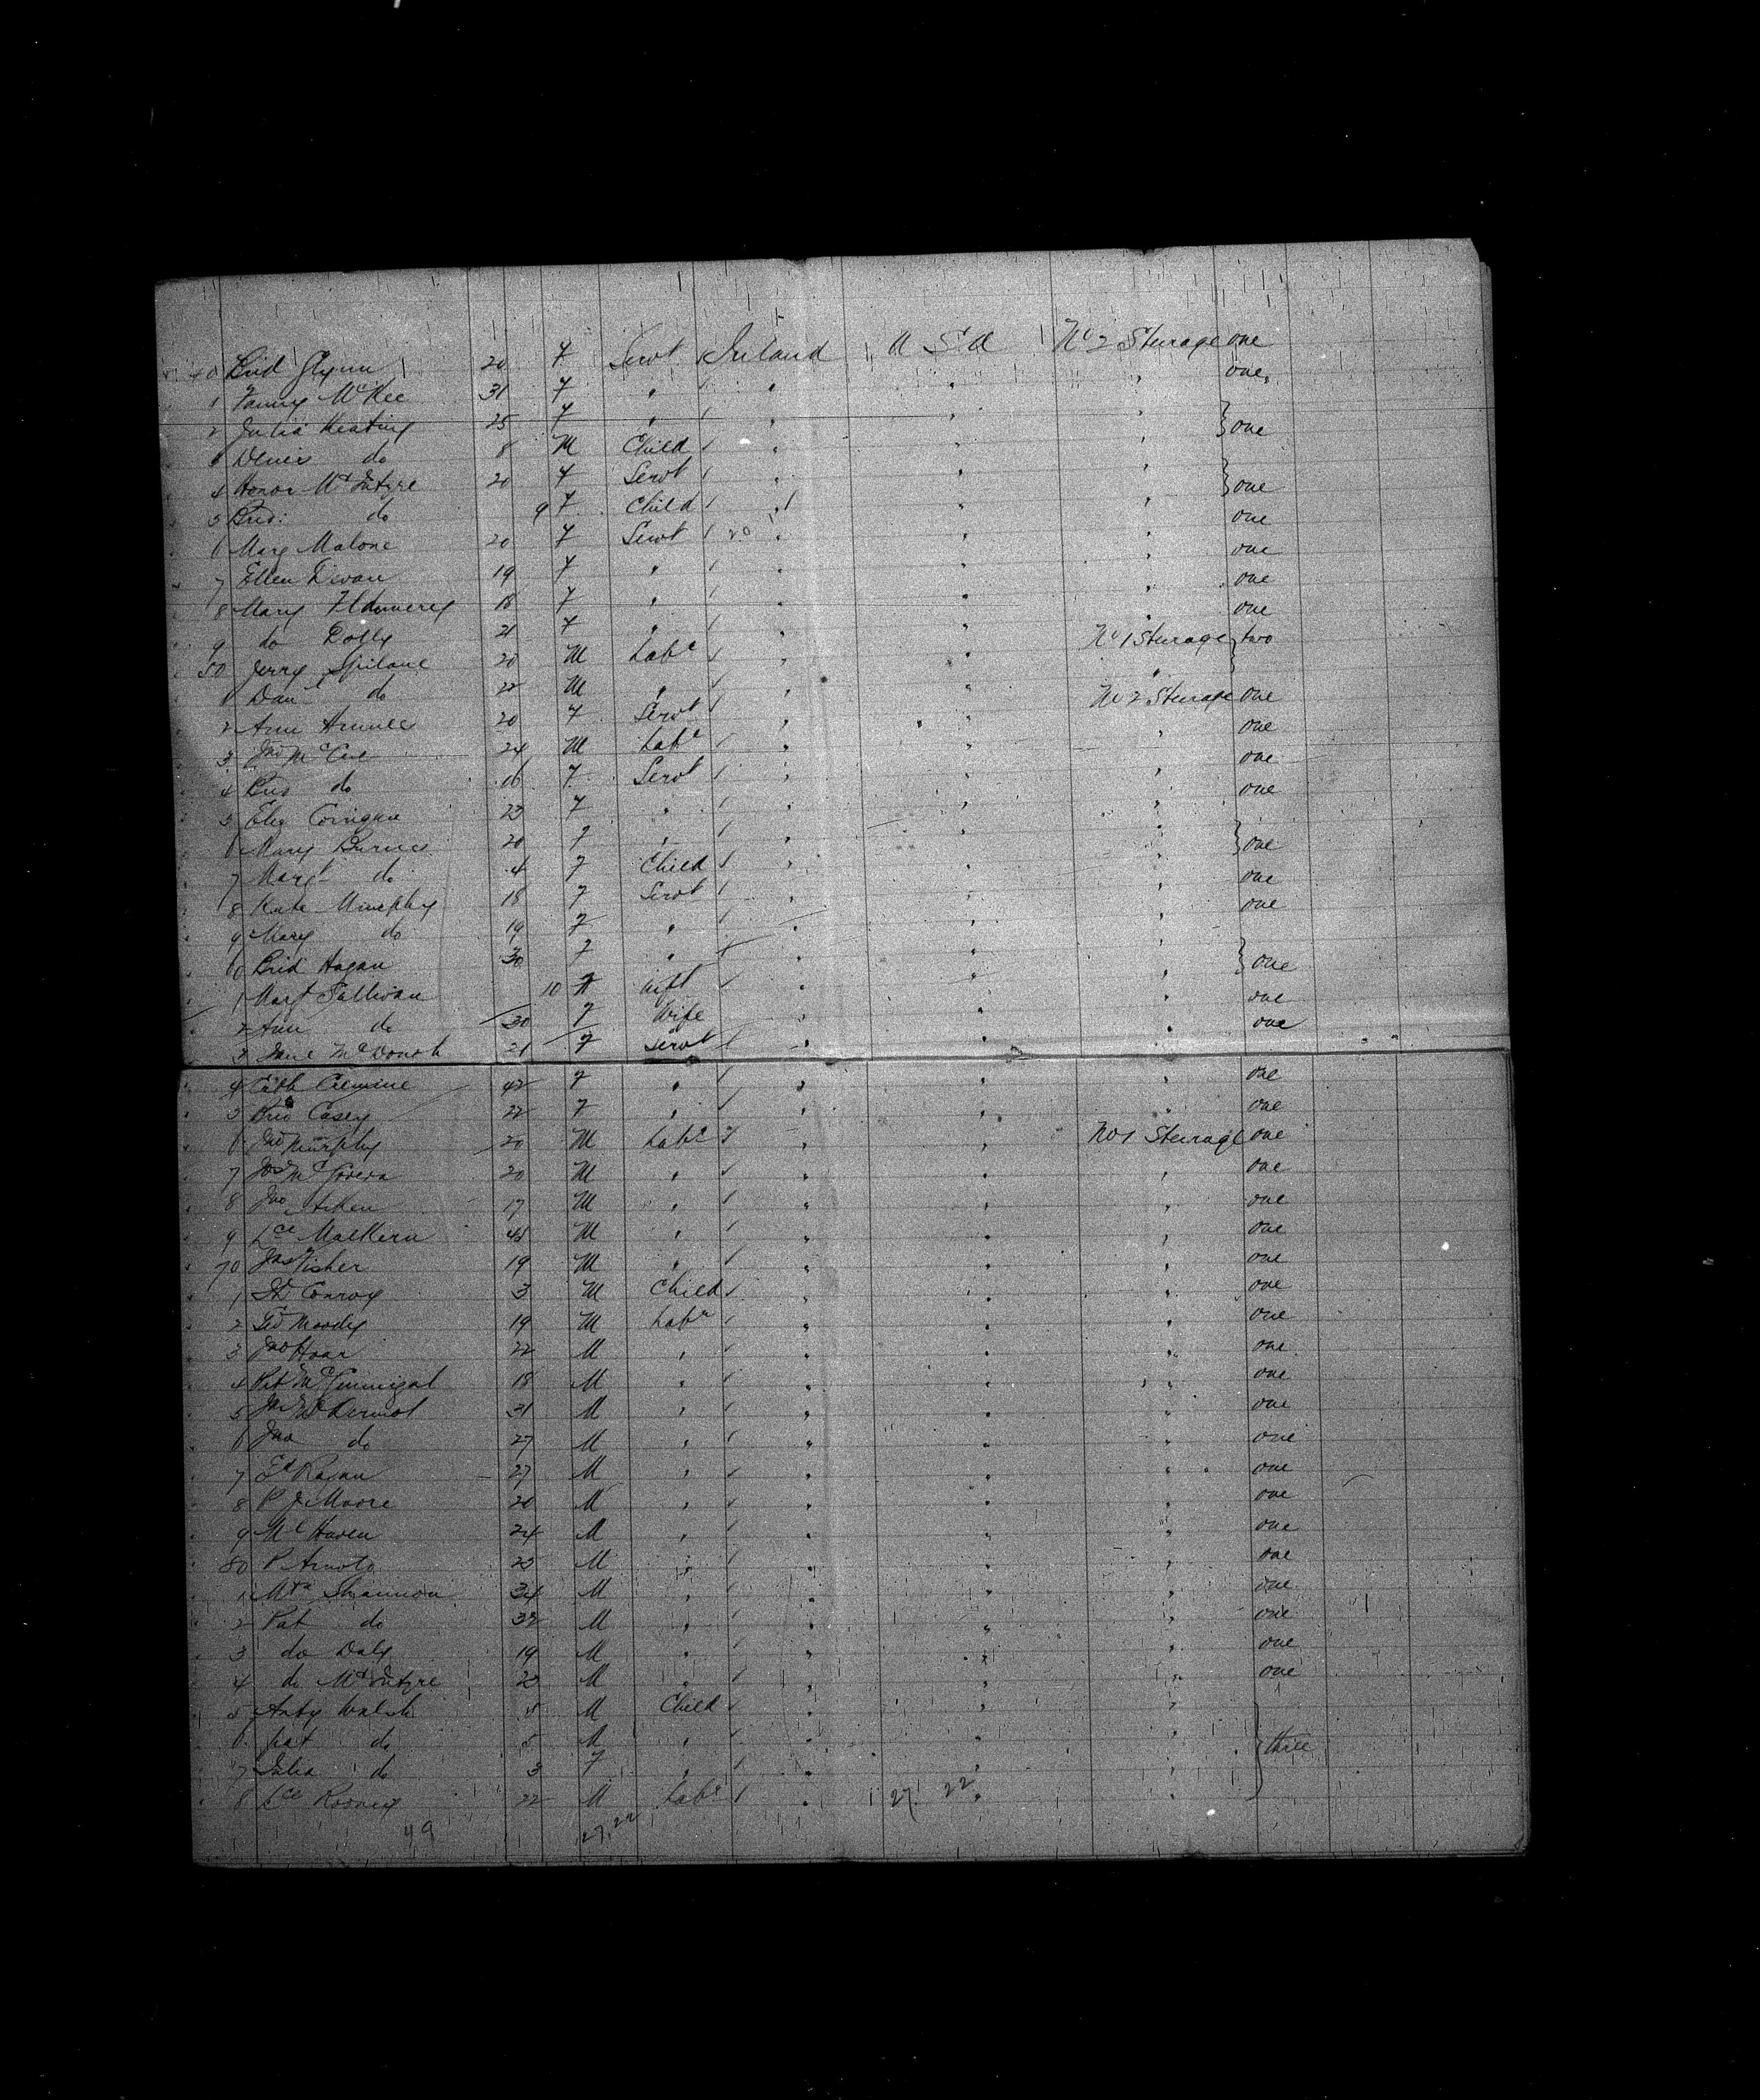 40 Brid Glynn 20 F Servt Ireland U S A No 2 Sturage one
1 Fanny McKee 31 F " " " " one
2 Julia Keating 25 F " " " " } one
3 Denis do 8 M Child " " "
4 Honor McIntyre 20 F Servt " " " } one
5 Brid: do 9 F Child " " "
6 Mary Malone 20 F Servt 20 " " " one
7 Ellen Divan 19 F " " " " one
8 Mary Fldumery 18 F " " " " one
9 do Dolly 21 F " " " " one
50 Jerry Spilane 20 M Labr " " No 1 Sturage } two
1 Danl do 22 M " " " "
2 Ann 20 F Servt " " No 2 Sturage one
3 Jno McCue 24 M Labr " " " one
4 Brid do 16 F Servt " " " one
5 Eliz Corrigan 23 F " " " " one
6 Mary Burnes 20 F " " " " } one
7 Margt do 4 F Child " " "
8 Kate Murphy 18 F Servt " " " one
9 Mary do 19 F " " " " one
60 Brid Hagan 30 F " " " "
1 Margt Sullivan 10 F inft " " " } one
2 Ann do 30 F Wife " " " one
3 Jane McDonoh 21 F Servt " " " one
4 Cath Cremine 42 F " " " " one
5 Brid Casey 22 F " " " " one
6 Jno Murphy 20 M Labr " " No 1 Sturage one
7 Jas McGovern 20 M " " " " one
8 Jno Aiken 17 M " " " " one
9 Lce Malkern 45 M " " " " one
70 Jas Fisher 19 M " " " " one
1 Conroy 3 M Child " " " one
2 Geo Moody 19 M Labr " " " one
3 Jno Hoar 22 M " " " " one
4 Pat McGunnigal 18 M " " " " one
5 McDermot 31 M " " " " one
6 Jno do 27 M " " " " one
7 Ed Ragan 27 M " " " " one
8 P J Moore 20 M " " " " one
9 Ml Haven 24 M " " " " one
80 P Arnold 23 M " " " " one
1 Shannon 34 M " " " " one
2 Pat do 32 M " " " " one
3 do Daly 19 M " " " " one
4 do McIntyre 23 M " " " " one
5 Anty Walsh 8 M Child " " "
6 Pat do 5 M " " " " } three
7 Julia do 3 F " " " "
8 Lce Rooney 22 M Labr " 27 22 "
49 27.22